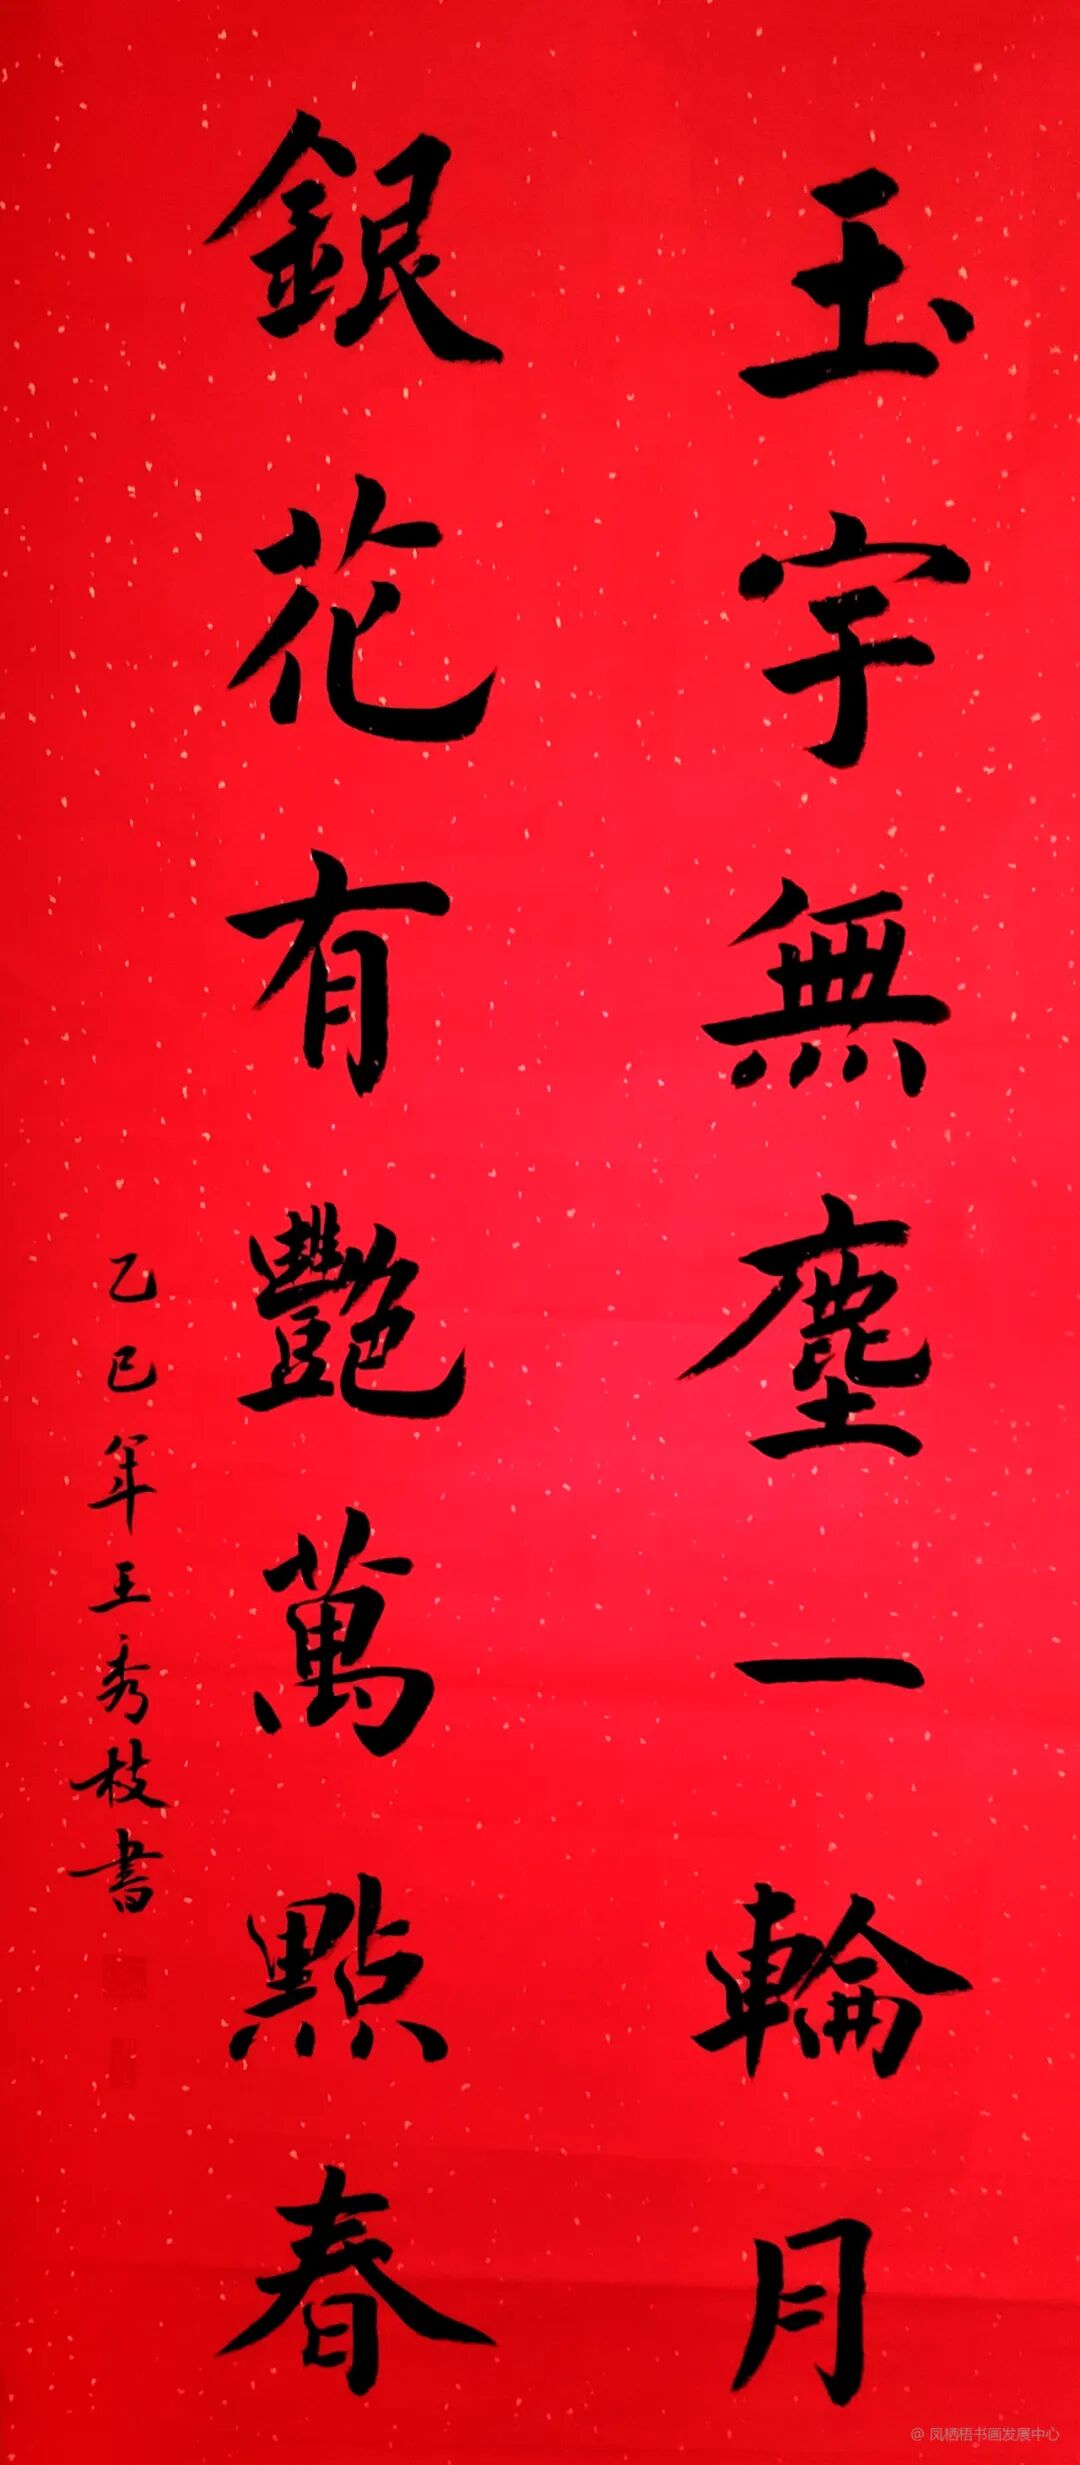 玉宇無塵一輪月
銀花有艷萬點春
乙巳年王秀枝書
@ 凤栖梧书画发展中心